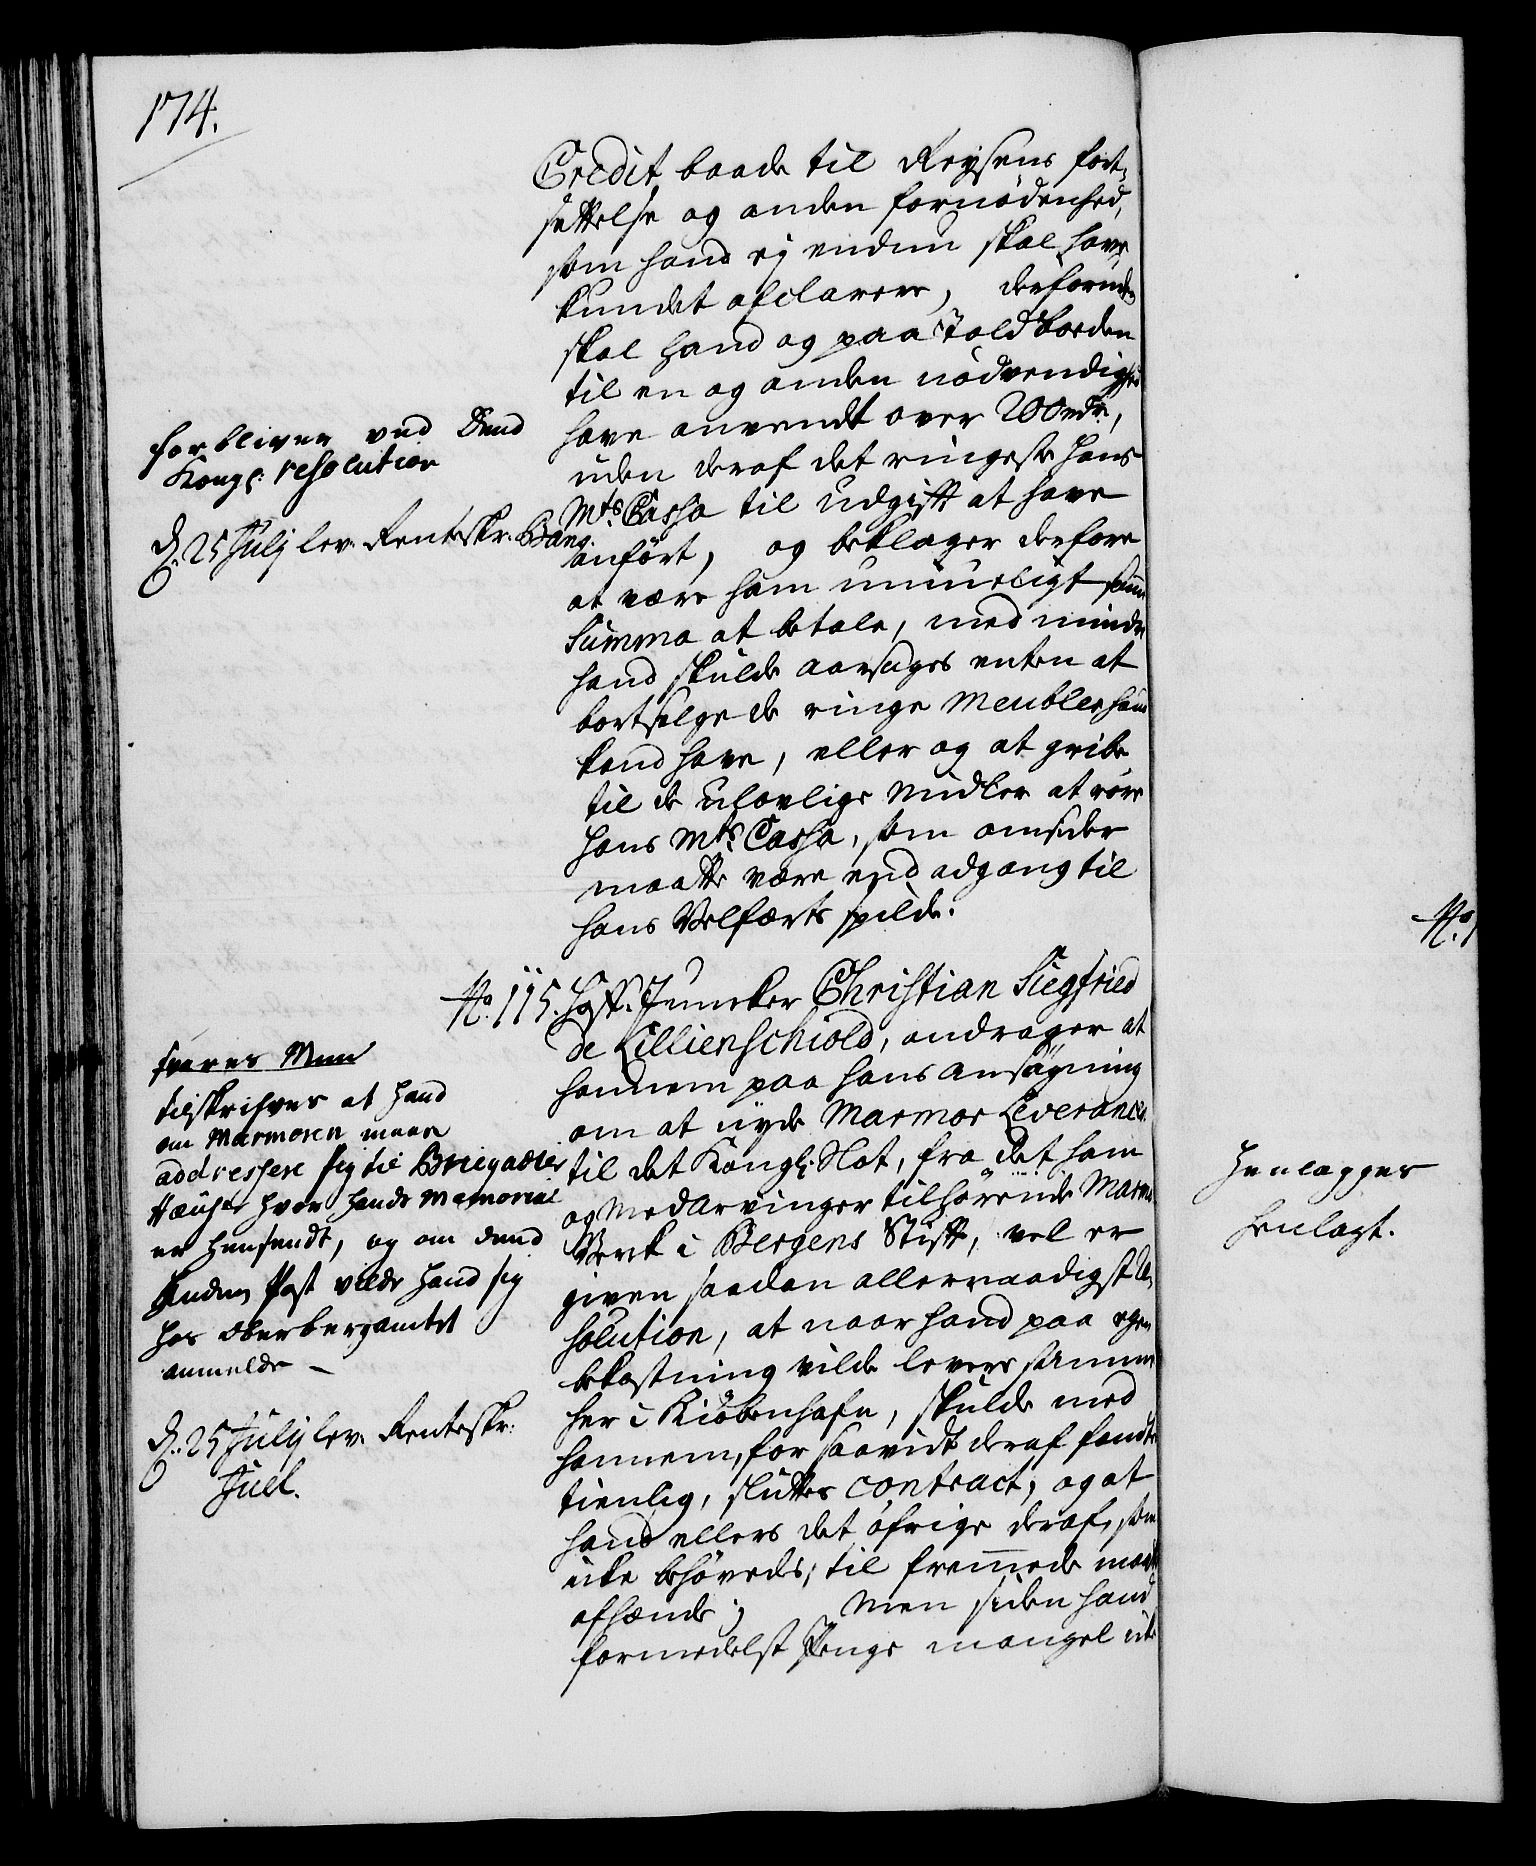 174.
Credit baade til Reysens fort-
settelse og anden fornødenhed,
som hand ej endnu skal have
kundet afclarere, desforuden
skal hand og paa Toldboeden
til en og anden nødvendighed
have anvendt over 200 rdr,
uden deraf det ringeste Hans
Mts Cassa til udgift at have
anført, og beklager derfore
at være ham umueligt samme
Summa at betale, med mindre
hand skulde aarsages enten at
bortselge de ringe Meubler hand
kand have, eller og at gribe
til de ulovlige Midler at røre
Hans Mts Cassa, som omsider
maatte være end adgang til
hans Velfærts spilde.
forbliver ved Dend
Kongl: resolution
d. 25 Julij lev. Renteskr. Bang.
No. 115. Hoff-Juncker Christian Siegfried
de Lillienschiold, andrager at
hannem paa hans ansøgning
om at nyde Marmor Leverancen
til det Kongl: Slot, fra det ham
og Medarvinger tilhørende Marmor
Verk i Bergens Stift, vel er
given saadan allernaadigst Re-
solution, at naar hand paa egen
bekostning vilde levere samme
her i Kiøbenhafn, skulde med
hannem, for saavidt deraf fandtes
tienlig, sluttes contract, og at
hand ellers det øfrige deraf, som
icke behøvedes, til fremmede maatte
afhænde; Men siden hand
formedelst Penge mangel icke
svares Mem
tilskrifves at hand
om Marmoren maae
addressere sig til Brigadier
Häusser hvor hands Memorial
er hensendt, og om dend
anden Post vilde hand sig
hos Oberbergamtet
anmelde –
d. 25 Julij lev. Renteskr:
Juel.
No.
Henlegges
henlagt.